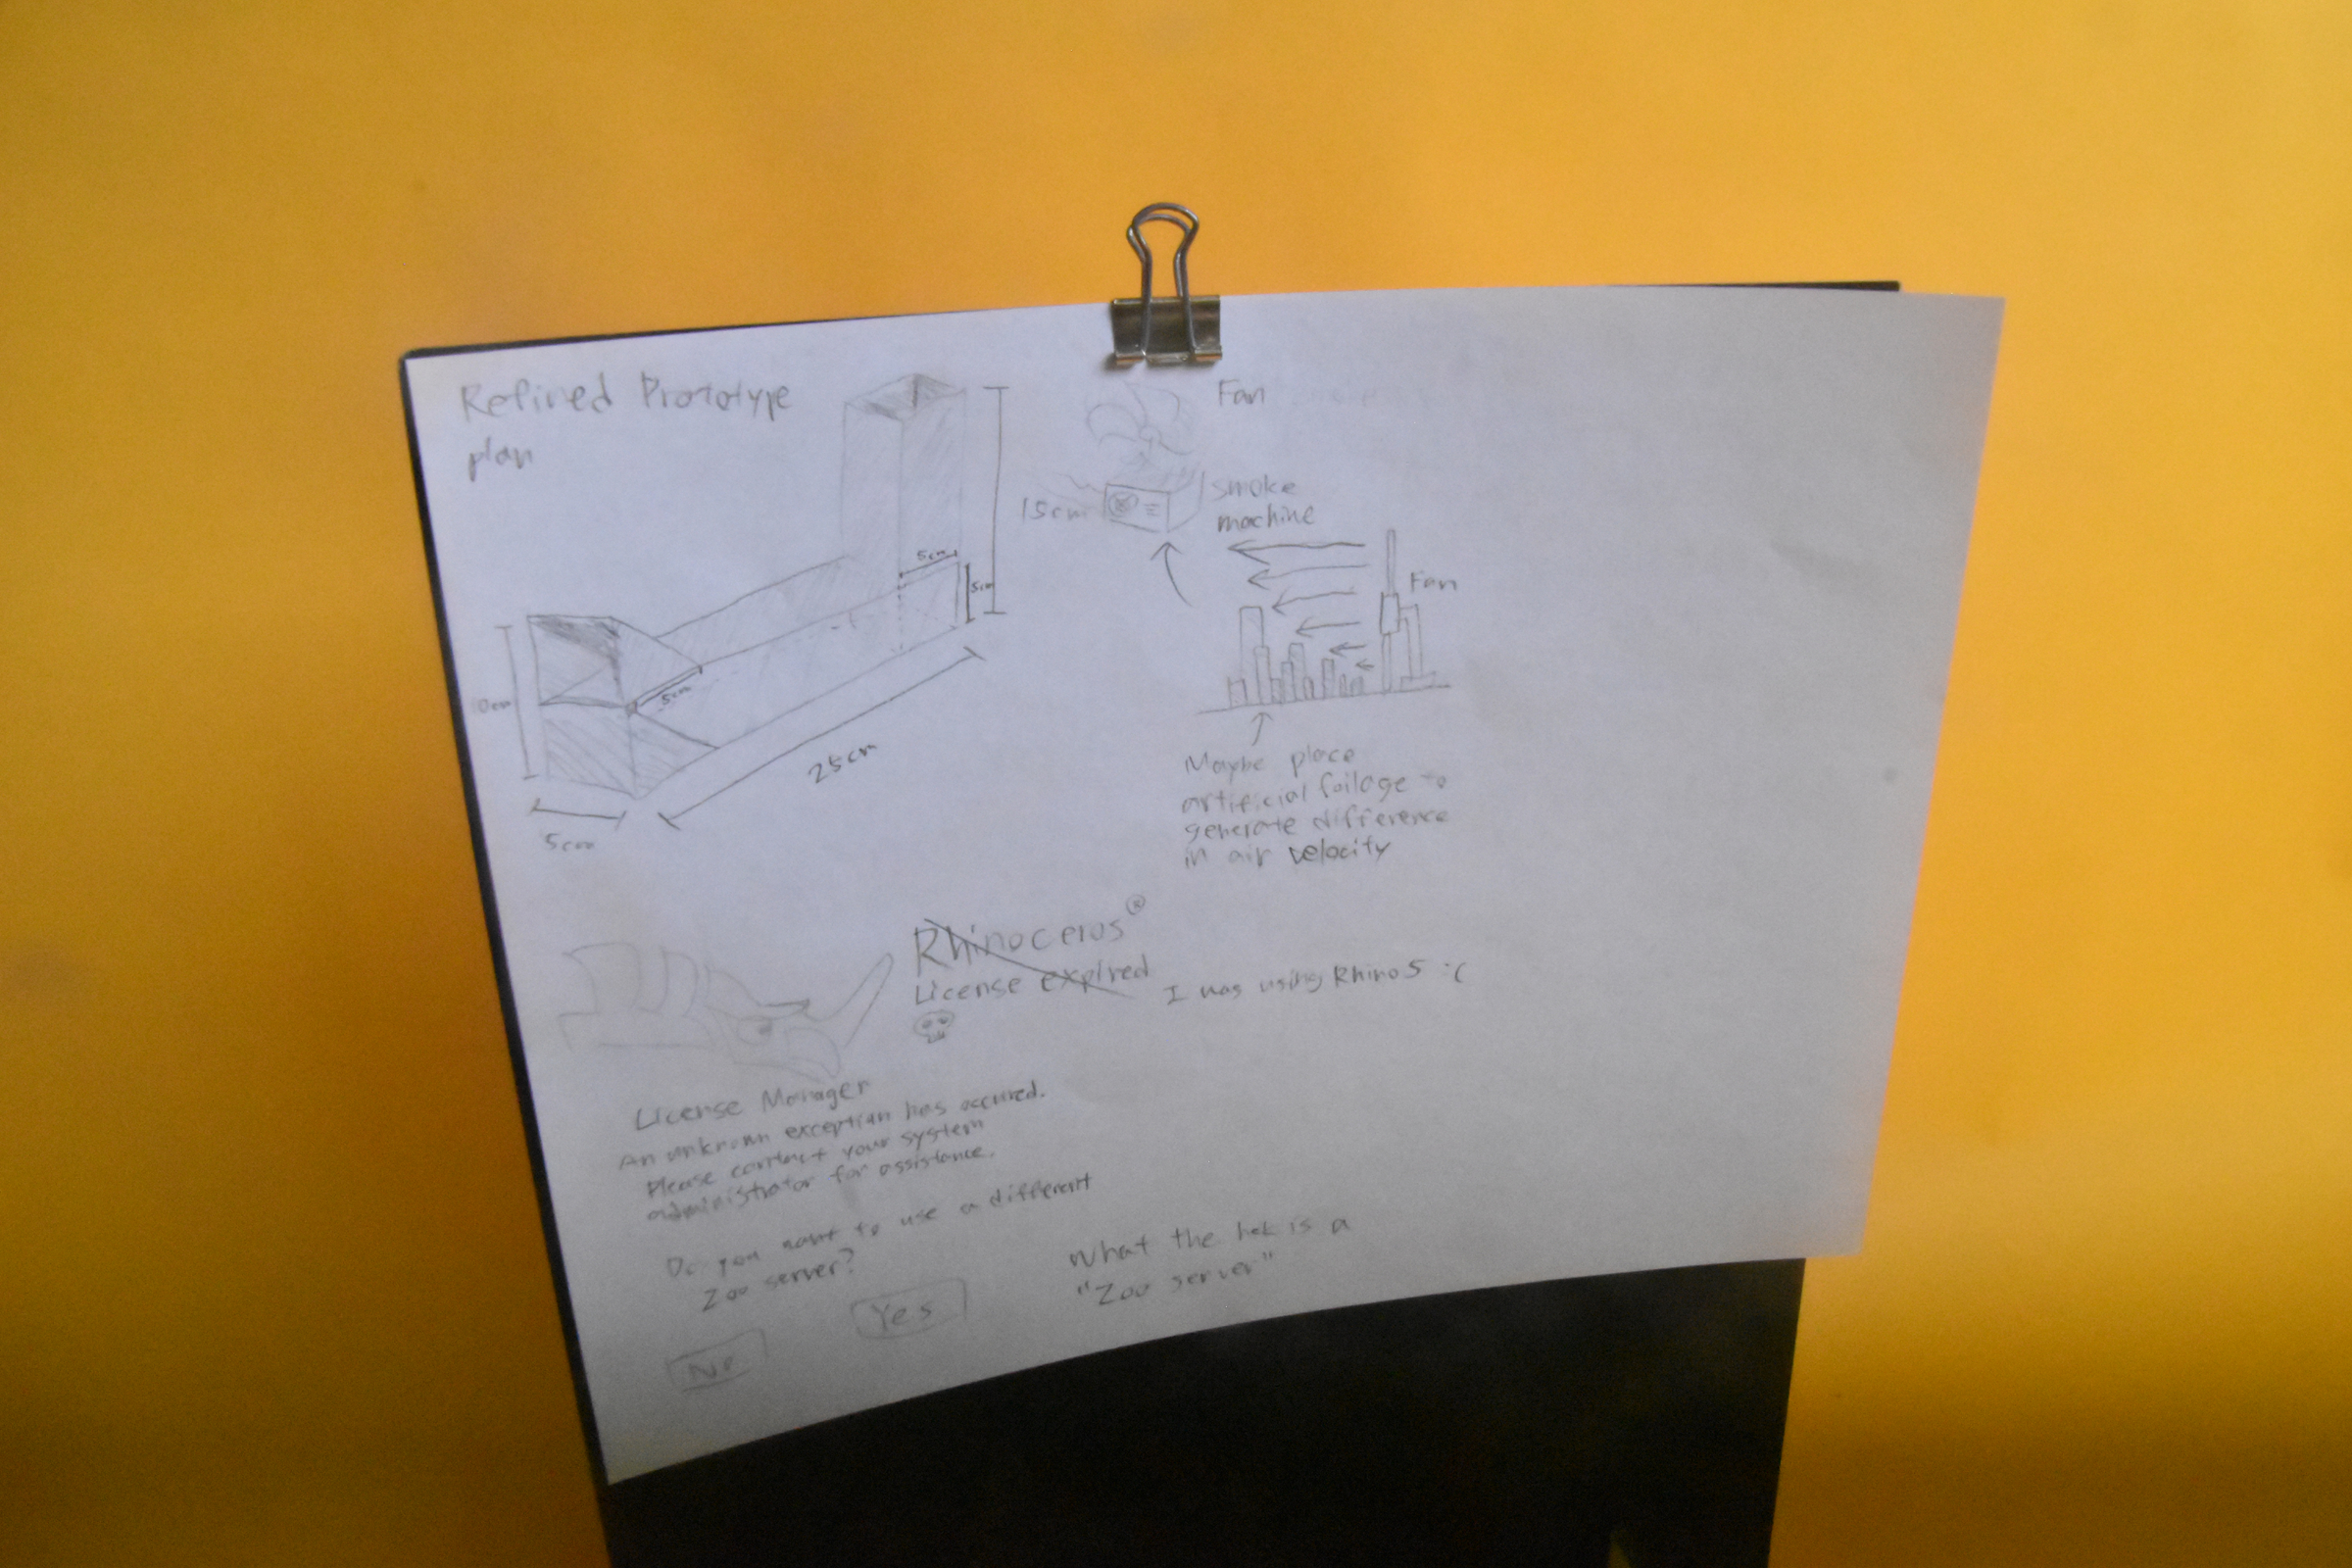 Refined Prototype
plan
15cm
5cm
5cm
5cm
0cm
25cm
5cm
Fan
smoke
machine
Fan
Maybe place
artificial foilage to
generate difference
in air velocity
Rhinoceros®
License expired
I was using Rhino 5 :(
License Manager
An unknown exception has occured.
Please contact your system
administrator for assistance.
Do you want to use a different
Zoo server?
No
Yes
What the hek is a
"Zoo server"